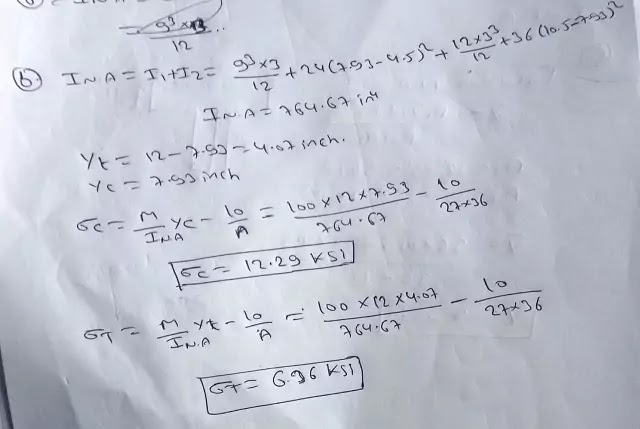 = 9³×3 / 12
(b) I N A = I₁+I₂ = 9³×3/12 + 24(7.93-4.5)² + 12×3³/12 + 36(10.5-7.93)²
I N A = 764.67 in⁴
Yt = 12-7.93 = 4.07 inch.
Yc = 7.93 inch
σc = M/I N A Yc - 10/A = 100×12×7.93/764.67 - 10/27×36
σc = 12.29 KSI
σT = M/I N.A Yt - 10/A = 100×12×4.07/764.67 - 10/27×36
σT = 6.36 KSI